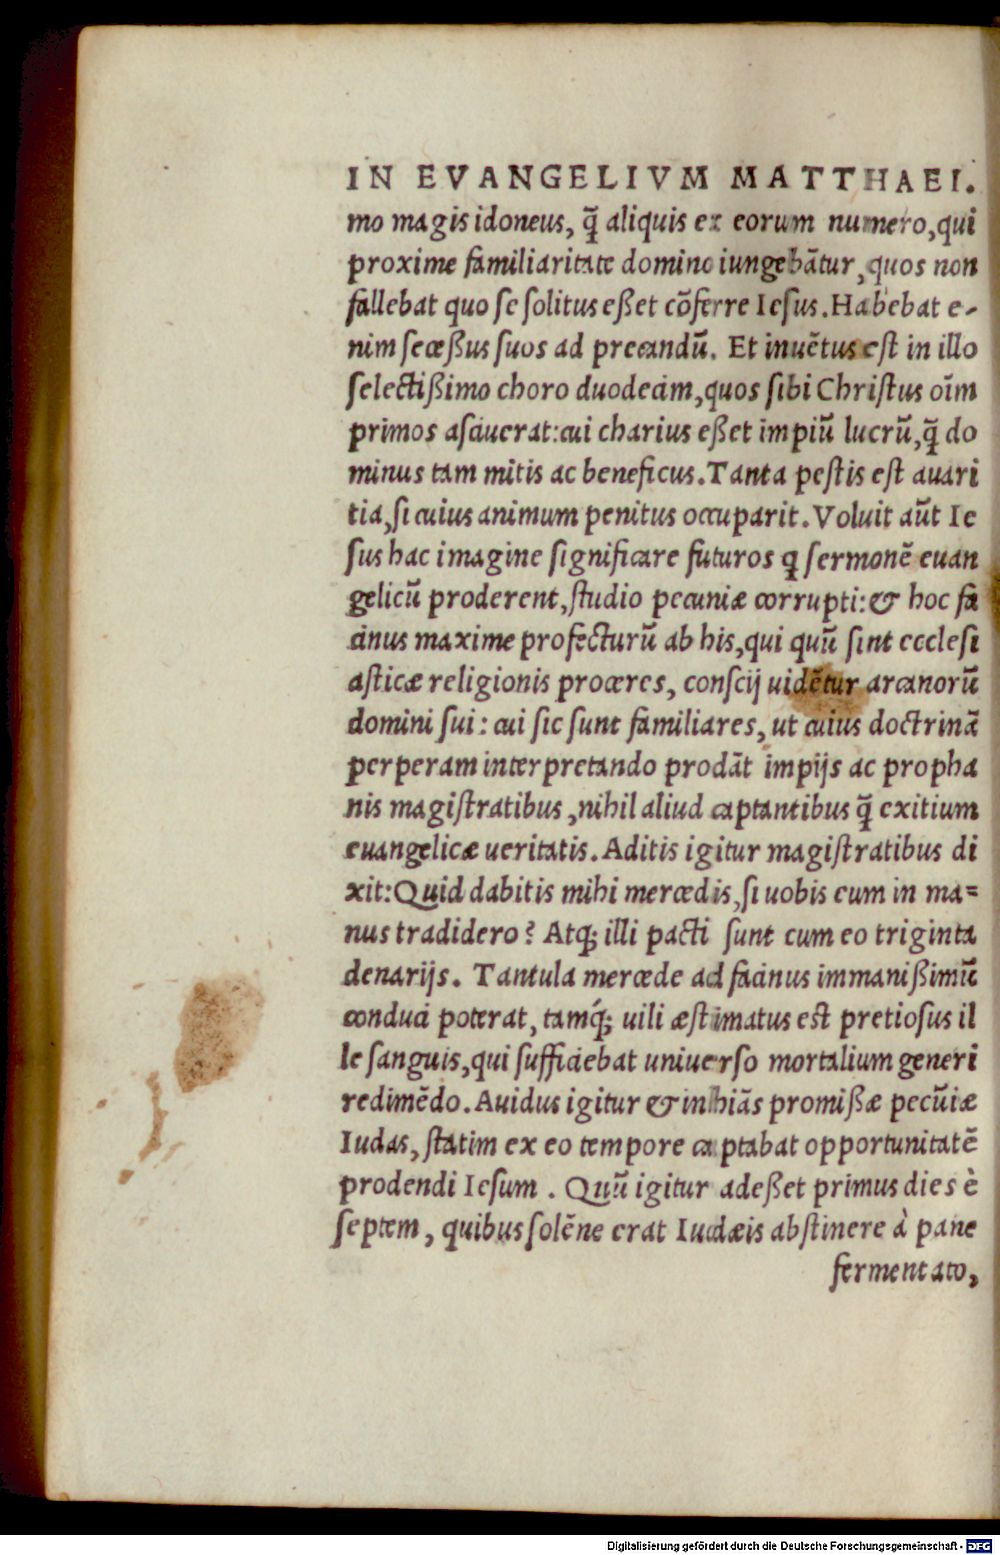 IN EVANGELIVM MATTHAEI.
mo magis idoneus, q̃ aliquis ex eorum numero, qui
proxime familiaritate domino iungebãtur, quos non
fallebat quo se solitus eßet cõferre Iesus. Habebat e-
nim seceßus suos ad precandũ. Et inuẽtus est in illo
selectißimo choro duodecim, quos sibi Christus oĩm
primos asciuerat: cui charius eßet impiũ lucrũ, q̃ do
minus tam mitis ac beneficus. Tanta pestis est auari
tia, si cuius animum penitus occuparit. Voluit aũt Ie
sus hac imagine significare futuros q sermonẽ euan
gelicũ proderent, studio pecuniæ corrupti: & hoc fa
cinus maxime profecturũ ab his, qui quũ sint ecclesi
asticæ religionis proceres, conscij uidẽtur arcanorũ
domini sui: cui sic sunt familiares, ut cuius doctrinã
perperam interpretando prodãt impijs ac propha
nis magistratibus, nihil aliud captantibus q̃ exitium
euangelicæ ueritatis. Aditis igitur magistratibus di
xit: Quid dabitis mihi mercedis, si uobis eum in ma=
nus tradidero? Atq; illi pacti sunt cum eo triginta
denarijs. Tantula mercede ad facinus immanißimũ
conduci poterat, tamq́; uili æstimatus est pretiosus il
le sanguis, qui sufficiebat uniuerso mortalium generi
redimẽdo. Auidus igitur & inhiãs promißæ pecũiæ
Iudas, statim ex eo tempore captabat opportunitatẽ
prodendi Iesum. Quũ igitur adeßet primus dies è
septem, quibus solẽne erat Iudæis abstinere à pane
fermentato,
Digitalisierung gefördert durch die Deutsche Forschungsgemeinschaft - DFG